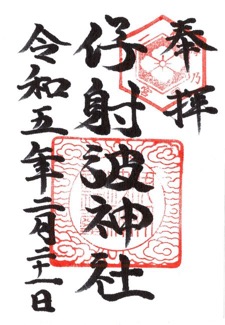 奉拝
伊射波神社
令和五年二月二十一日